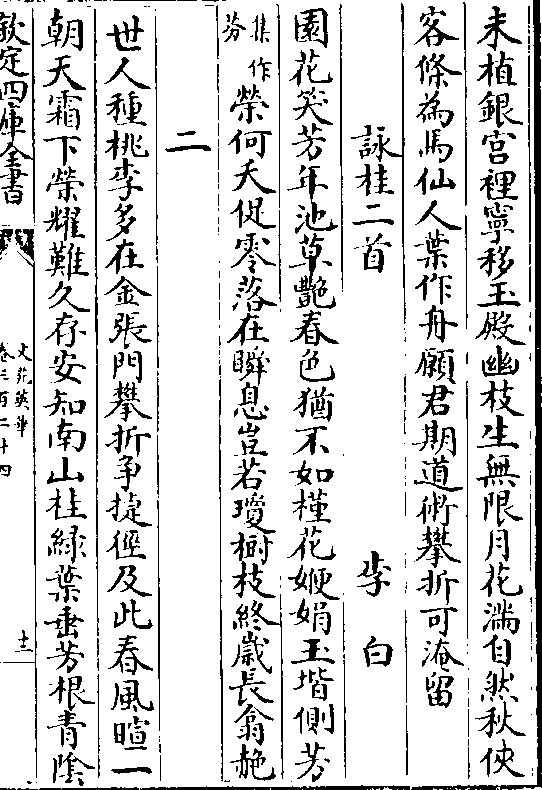 未植銀宫裡寧移玉殿幽枝生無限月花滿自然秋俠
客條為馬仙人葉作舟願君期道術攀折可淹留
詠桂二首 李白
園花笑芳年池草艷春色猶不如槿花嬋娟玉堦側芳
集作芬
榮何夭促零落在瞬息豈若瓊樹枝終歲長翕赩
二
世人種桃李多在金張門攀折争捷徑及此春風暄一
朝天霜下榮耀難久存安知南山桂綠葉垂芳根青陰
欽定四庫全書
文苑英華
卷三百二十四
十三